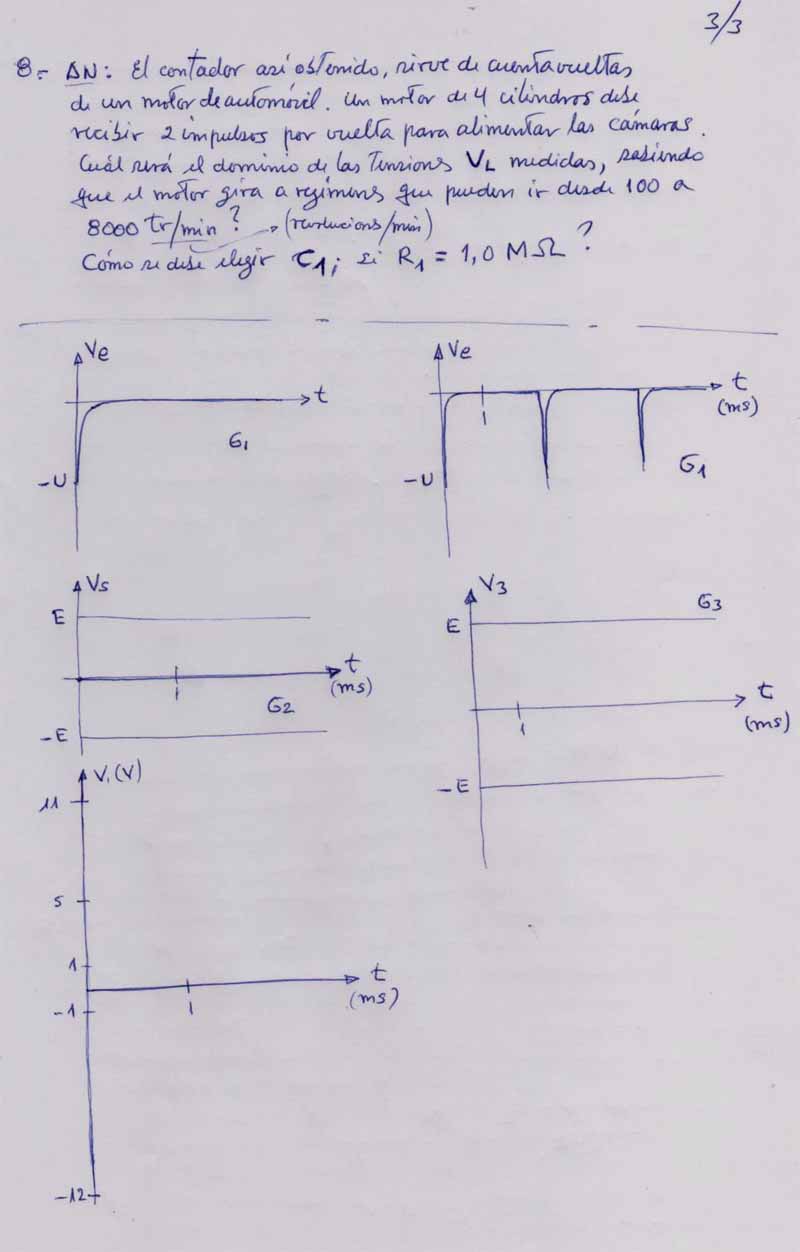 3/3
8.- AN: El contador así obtenido, sirve de cuentavueltas
de un motor de automóvil. Un motor de 4 cilindros debe
recibir 2 impulsos por vuelta para alimentar las cámaras.
Cuál será el dominio de las tensiones VL medidas, sabiendo
que el motor gira a regímenes que pueden ir desde 100 a
8000 tr/min? → (revolucions/min)
Cómo se debe elegir C1; si R1 = 1,0 MΩ?
Ve
t
G1
-U
Ve
t
(ms)
1
G1
-U
Vs
E
t
(ms)
1
G2
-E
V3
G3
E
t
(ms)
1
-E
V1(V)
11
5
1
t
(ms)
1
-1
-12